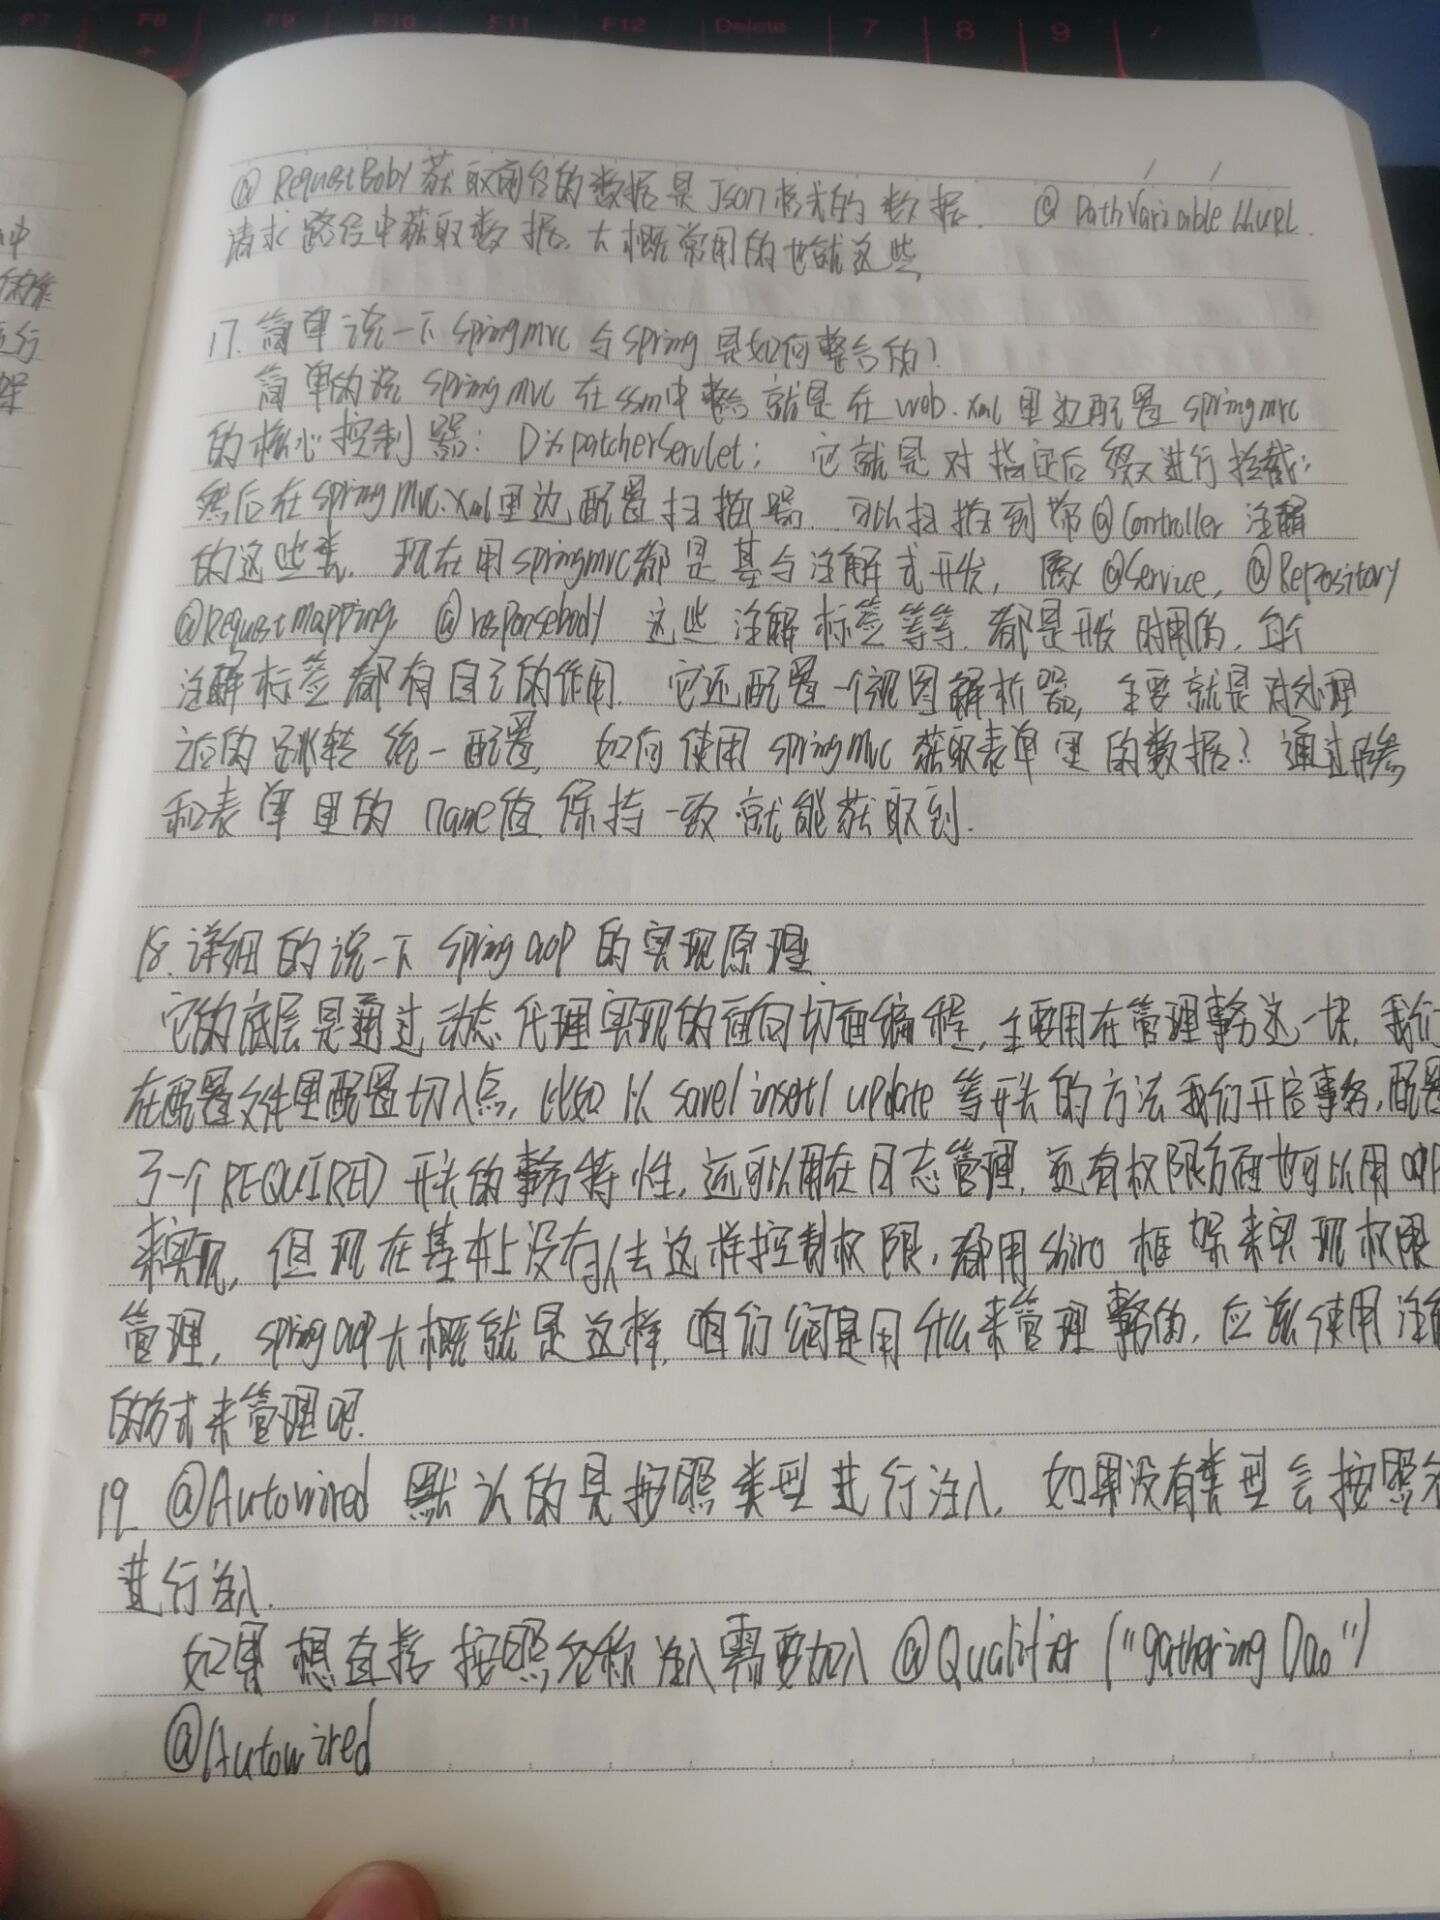 @RequestBoby 获取前台的数据是Json格式的数据. @PathVariable 从URL.
请求路径中获取数据. 大概常用的也就这些
17. 简单说一下springmvc与spring是如何整合的?
简单的说 springmvc 在ssm中整合就是在web.xml里边配置springmvc
的核心控制器: DispatcherServlet; 它就是对指定后缀进行拦截;
然后在springmvc.xml里边配置扫描器. 可以扫描到带@Controller 注解
的这些类. 现在用springmvc都是基与注解式开发, 像 @Service, @Repository
@RequestMapping, @responsebody 这些注解标签等等. 都是开发时用的, 每个
注解标签都有自己的作用. 它还配置一个视图解析器, 主要就是对处理
之后的跳转统一配置, 如何使用springmvc获取表单里的数据? 通过形参
和表单里的name值保持一致就能获取到.
18. 详细的说一下 spring aop 的实现原理
它的底层是通过动态代理实现的面向切面编程, 主要用在管理事务这一块, 我们
在配置文件里配置切入点, 比如以 save/insert/update 等开头的方法我们开启事务, 配置
了一个REQUIRED 开头的事务特性, 还可以用在日志管理, 还有权限方面也可以用aop
来实现, 但现在基本上没有人去这样控制权限, 都用shiro 框架来实现权限
管理, spring aop 大概就是这样, 咱们公司是用什么来管理事务的, 应该使用注解
的方式来管理吧.
19 @Autowired 默认的是按照类型进行注入, 如果没有类型会按照名
进行注入.
如果想直接按照名称注入需要加入 @Qualifier ("gatheringDao")
@Autowired
F7 F8 F9 F10 F11 F12 Delete 7 8 9